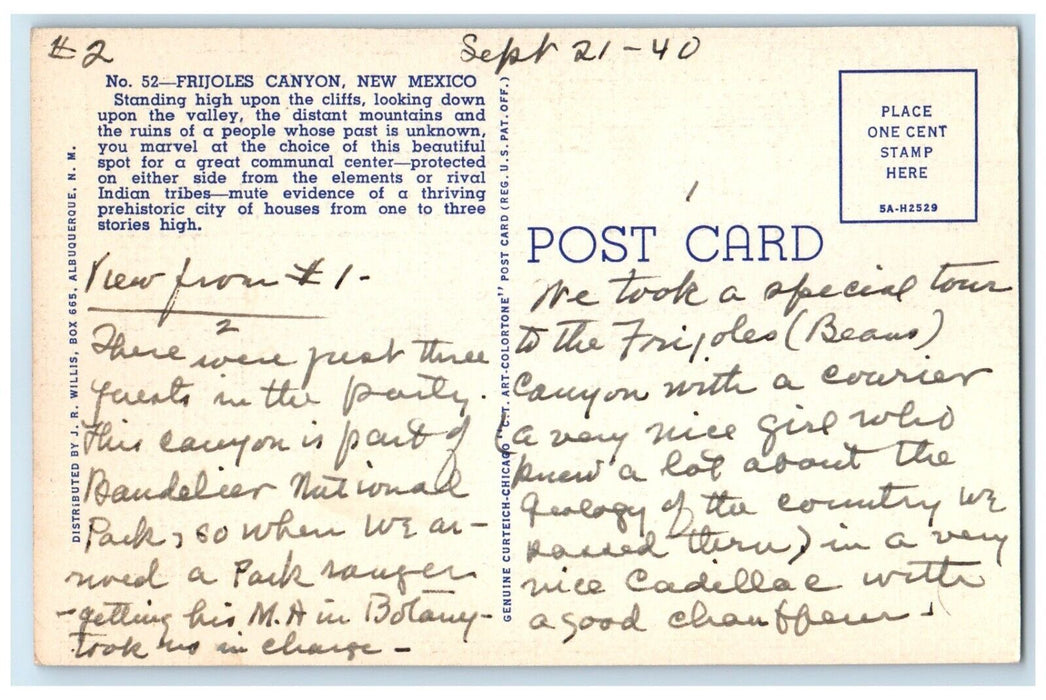 #2
Sept 21-40
No. 52—FRIJOLES CANYON, NEW MEXICO
Standing high upon the cliffs, looking down
upon the valley, the distant mountains and
the ruins of a people whose past is unknown,
you marvel at the choice of this beautiful
spot for a great communal center—protected
on either side from the elements or rival
Indian tribes—mute evidence of a thriving
prehistoric city of houses from one to three
stories high.
DISTRIBUTED BY J. R. WILLIS, BOX 665, ALBUQUERQUE, N. M.
GENUINE CURTEICH-CHICAGO "C.T. ART-COLORTONE" POST CARD (REG. U.S. PAT. OFF.)
PLACE
ONE CENT
STAMP
HERE
5A-H2529
POST CARD
1
We took a special tour
to the Frijoles (Beans)
Canyon with a courier
(a very nice girl who
knew a lot about the
geology of the country we
passed thru) in a very
nice Cadillac with
a good chauffeur.
View from #1-
2
There were just three
guests in the party.
This canyon is part of
Bandelier National
Park, so when we ar-
rived a Park ranger
-getting his M.A in Botany-
took us in charge -